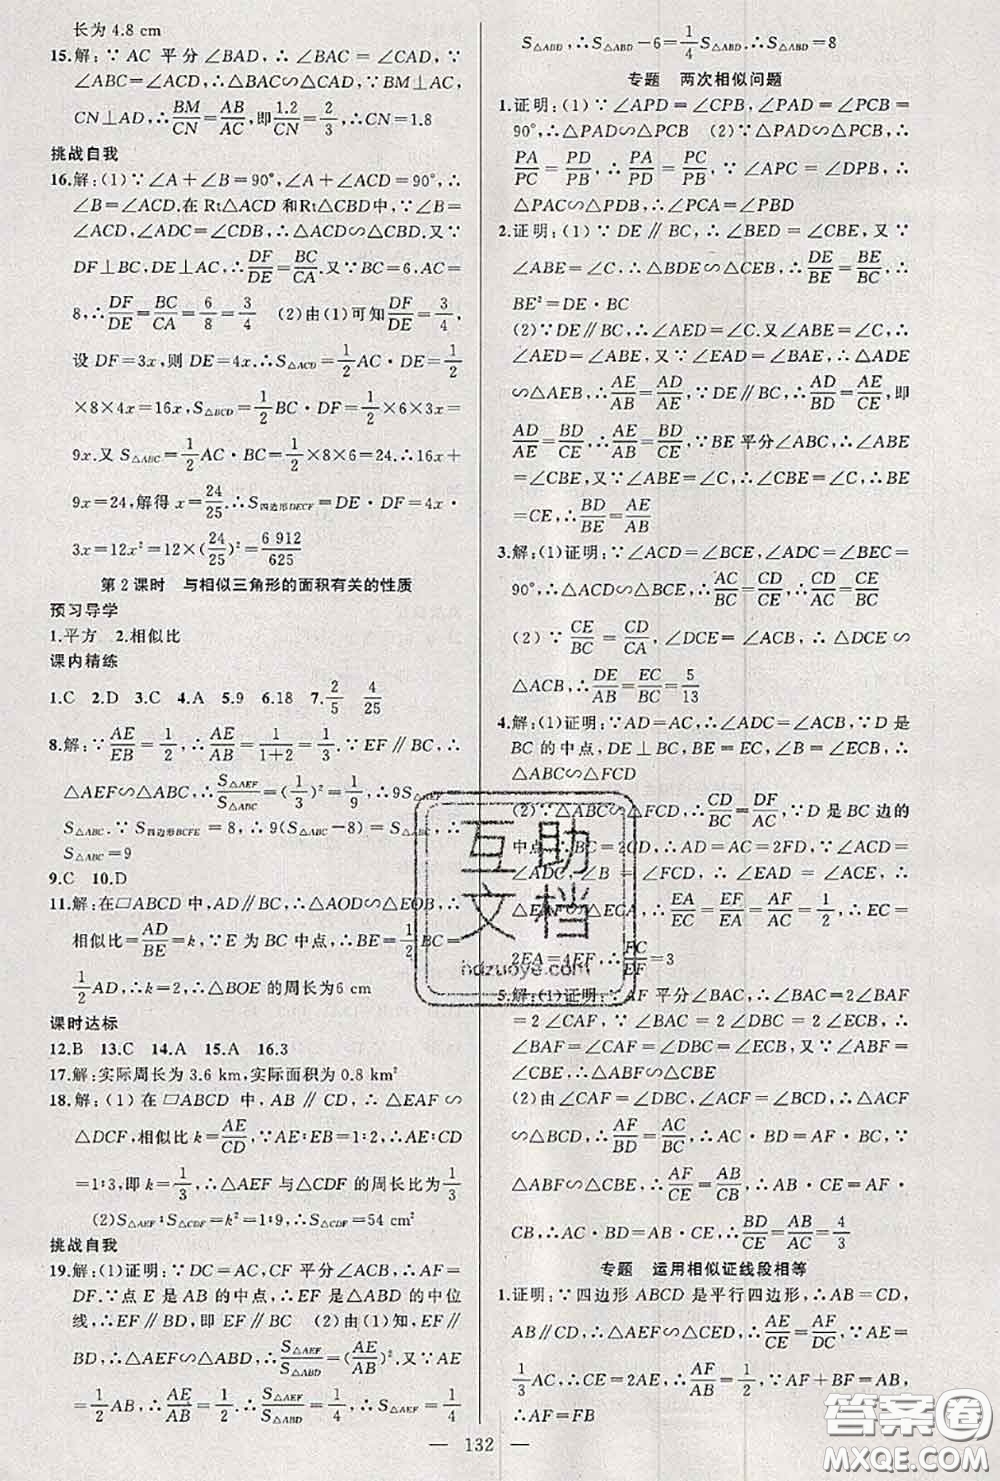 长为 4.8 cm
15.解:∵ AC 平分∠BAD,∴∠BAC=∠CAD,∵
∠ABC=∠ACD,∴△BAC∽△CAD,∵BM⊥AC,
CN⊥AD,∴BM/CN=AB/AC,即1.2/CN=2/3,∴CN=1.8
挑战自我
16.解:(1)∵∠A+∠B=90°,∠A+∠ACD=90°,∴
∠B=∠ACD.在Rt△ACD和Rt△CBD中,∵∠B=
∠ACD,∠ADC=∠CDB,∴△ACD∽△CBD.又∵
DF⊥BC,DE⊥AC,∴DF/DE=BC/CA.又∵BC=6,AC=
8,∴DF/DE=BC/CA=6/8=3/4 (2)由(1)可知DF/DE=3/4,
设DF=3x,则DE=4x.∴S△ACD=1/2AC·DE=1/2
×8×4x=16x,S△BCD=1/2BC·DF=1/2×6×3x=
9x.又S△ABC=1/2AC·BC=1/2×8×6=24.∴16x+
9x=24,解得x=24/25.∴S四边形DECF=DE·DF=4x·
3x=12x²=12×(24/25)²=6 912/625
第2课时 与相似三角形的面积有关的性质
预习导学
1.平方 2.相似比
课内精练
1.C 2.D 3.C 4.A 5.9 6.18 7.2/5 4/25
8.解:∵AE/EB=1/2,∴AE/AB=1/(1+2)=1/3.∵EF∥BC,∴
△AEF∽△ABC,∴S△AEF/S△ABC=(1/3)²=1/9,∴9S△AEF=
S△ABC.∵S四边形BCFE=8,∴9(S△ABC-8)=S△ABC,∴
S△ABC=9
9.C 10.D
11.解:在▱ABCD中,AD∥BC,∴△AOD∽△EOB,∴
相似比=AD/BE=k,∵E为BC中点,∴BE=1/2BC=
1/2AD,∴k=2,∴△BOE的周长为6 cm
课时达标
12.B 13.C 14.A 15.A 16.3
17.解:实际周长为3.6 km,实际面积为0.8 km²
18.解:(1)在▱ABCD中,AB∥CD,∴△EAF∽
△DCF,相似比k=AE/CD,∵AE∶EB=1∶2,∴AE∶CD
=1∶3,即k=1/3,∴△AEF与△CDF的周长比为1/3
(2)S△AEF∶S△CDF=k²=1∶9,∴S△CDF=54 cm²
挑战自我
19.解:(1)证明:∵DC=AC,CF平分∠ACB,∴AF=
DF.∵点E是AB的中点,∴EF是△ABD的中位
线,∴EF∥BD,即EF∥BC (2)由(1)知,EF∥
BD,∴△AEF∽△ABD,∴S△AEF/S△ABD=(AE/AB)².又∵AE
=1/2AB,∴AE/AB=1/2,∴S△AEF/S△ABD=1/4,∴S△AEF=1/4
S△ABD,∴S△ABD-6=1/4S△ABD.∴S△ABD=8
专题 两次相似问题
1.证明:(1)∵∠APD=∠CPB,∠PAD=∠PCB=
90°,∴△PAD∽△PCB (2)∵△PAD∽△PCB,∴
PA/PC=PD/PB,∴PA/PD=PC/PB,∵∠APC=∠DPB,∴
△PAC∽△PDB,∴∠PCA=∠PBD
2.证明:(1)∵DE∥BC,∴∠BED=∠CBE,又∵
∠ABE=∠C.∴△BDE∽△CEB,∴DE/BE=BE/BC,∴
BE²=DE·BC
(2)∵DE∥BC,∴∠AED=∠C.又∠ABE=∠C,∴
∠AED=∠ABE,又∵∠EAD=∠BAE,∴△ADE
∽△AEB,∴AE/AB=AD/AE,∵DE∥BC,∴AD/BD=AE/CE,即
AD/AE=BD/CE,∴AE/AB=BD/CE,∵BE平分∠ABC,∴∠ABE
=∠CBE,又∵∠ABE=∠C,∴∠CBE=∠C,∴BE
=CE,∴BD/BE=AE/AB
3.解:(1)证明:∵∠ACD=∠BCE,∠ADC=∠BEC=
90°,∴△ACD∽△BCE,∴AC/BC=CD/CE,∴AC/CD=BC/CE
(2)∵CE/BC=CD/CA,∠DCE=∠ACB,∴△DCE∽
△ACB,∴DE/AB=EC/BC=5/13
4.解:(1)证明:∵AD=AC,∴∠ADC=∠ACB,∵D是
BC的中点,DE⊥BC,BE=EC,∠B=∠ECB,∴
△ABC∽△FCD
(2)∵△ABC∽△FCD,∴CD/BC=DF/AC,∵D是BC边的
中点,∴BC=2CD,∴AD=AC=2FD,∵∠ACD=
∠ADC,∠B=∠FCD,∴∠EAD=∠ACE,∴
△EAF∽△ECA,∴EA/EC=EF/EA=AF/AC=1/2,∴EC=
2EA=4EF,∴FC/EF=3
5.解:(1)证明:∵AF平分∠BAC,∴∠BAC=2∠BAF
=2∠CAF,∵∠BAC=2∠DBC=2∠ECB,∴
∠BAF=∠CAF=∠DBC=∠ECB,又∵∠ABF=
∠CBE,∴△ABF∽△CBE
(2)由∠CAF=∠DBC,∠ACF=∠BCD,∴△ACF
∽△BCD,∴AF/BD=AC/BC,∴AC·BD=AF·BC,∵
△ABF∽△CBE,∴AF/CE=AB/CB,∴AB·CE=AF·
CB,∴AC·BD=AB·CE,∴BD/CE=AB/AC=4/3
专题 运用相似证线段相等
1.证明:∵四边形ABCD是平行四边形,∴AB=CD,
AB∥CD,∴△AEF∽△CED,∴AE/CE=AF/DC,∵AE=
1/3AC,∴CE=2AE,∴AF/AB=1/2,∵AF+BF=AB,
∴AF=FB
— 132 —
互助文档
hdzuoye.com
答案圈
MXQE.COM